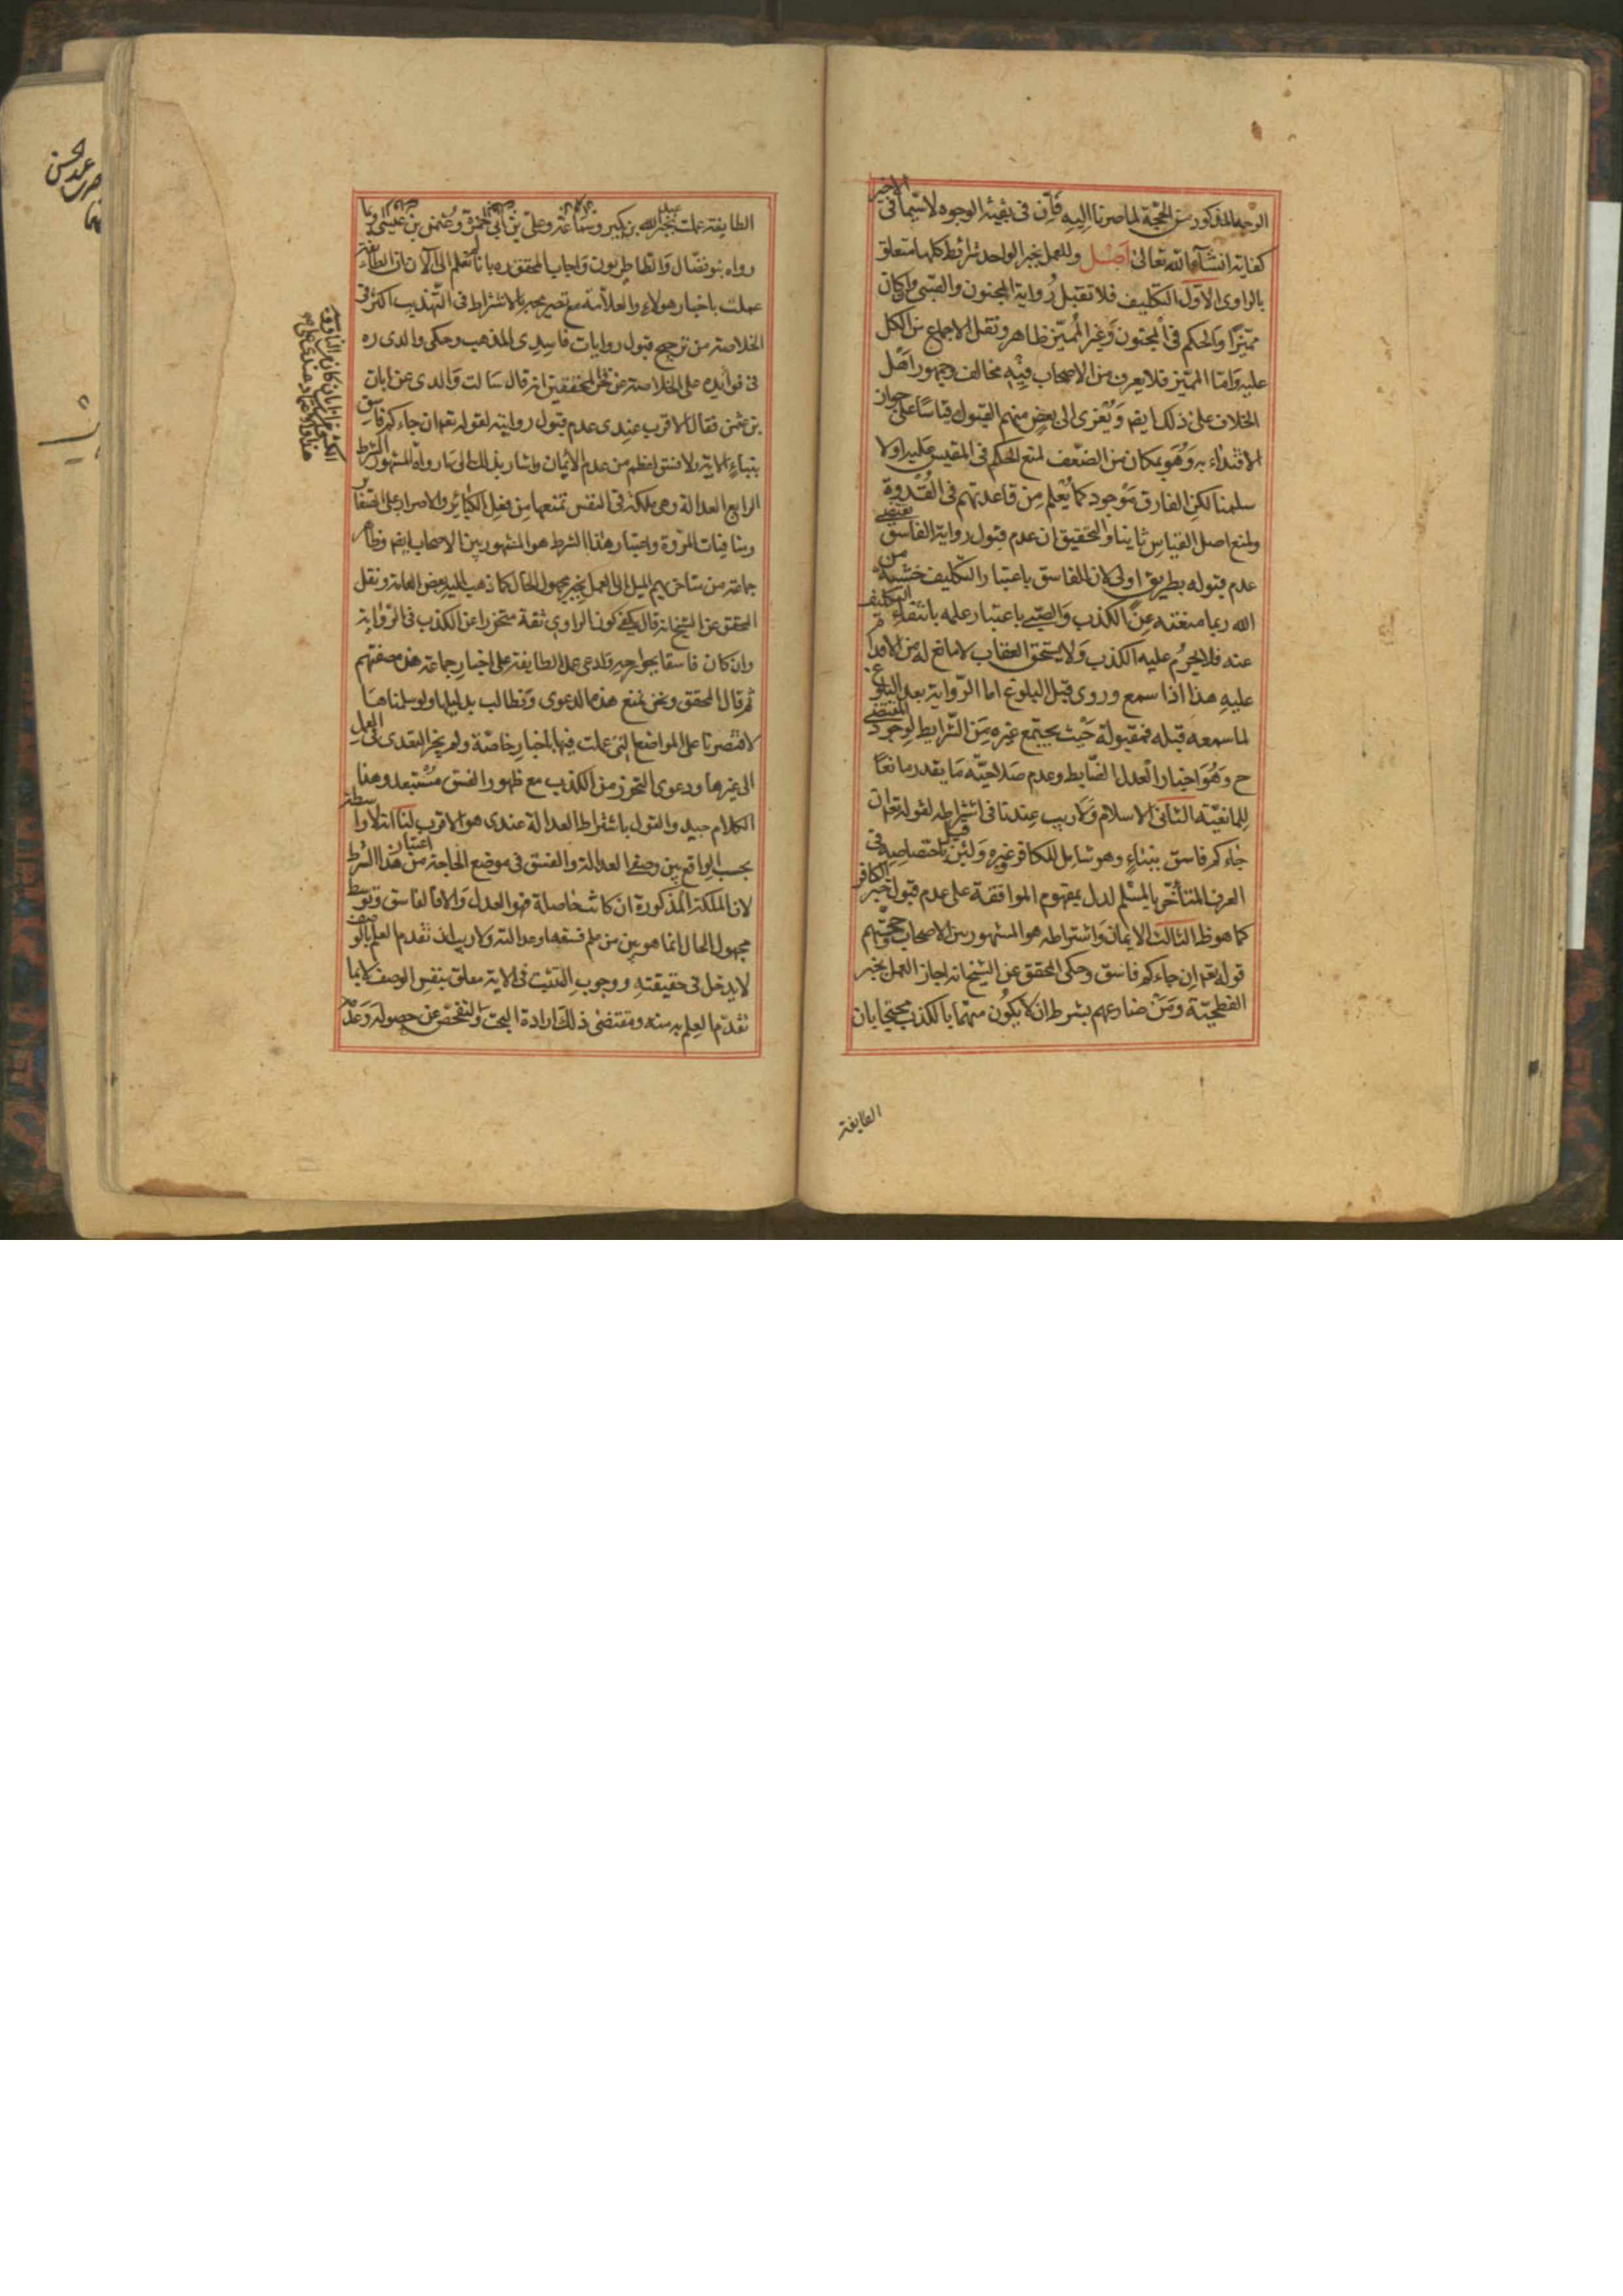 الوجه المذكور من الحجة لما صرنا اليه فان في بقية الوجوه لا سيما في الاخير
كفاية انشآء الله تعالى اصل وللعمل بخبر الواحد شرائط كلها متعلق
بالراوى الاول التكليف فلا تقبل رواية المجنون والصبي وان كان
مميزا والحكم في المجنون وغير المميز ظاهر ونقل الاجماع من الكل
عليه واما المميز فلا يعرف من الاصحاب فيه مخالف وجمهور اهل
الخلاف على ذلك ايضا ويعزى الى بعض منهم القبول قياسا على جواز
الاقتداء به وهو بمكان من الضعف لمنع الحكم في المقيس عليه اولا
سلمنا لكن الفارق موجود كما يعلم من قاعدتهم في القدوة
ولمنع اصل القياس ثانيا والتحقيق ان عدم قبول رواية الفاسق يقتضي
عدم قبوله بطريق اولى لان للفاسق باعتبار التكليف خشية من
الله ربما منعته عن الكذب والصبي باعتبار علمه بانتفاء التكليف
عنه فلا يحرم عليه الكذب ولا يستحق العقاب لا مانع له من الاقدام
عليه هذا اذا سمع وروى قبل البلوغ اما الرواية بعد البلوغ
لما سمعه قبله فمقبولة حيث يجتمع غيره من الشرايط لوجود المقتضي
ح وهو اخبار العدل الضابط وعدم صلاحية ما يقدر مانعا
للمانعية الثاني الاسلام ولا ريب عندنا في اشتراطه لقوله تعه ان
جاءكم فاسق بنباء وهو شامل للكافر وغيره ولئن قيل باختصاصه في
العرف المتأخر بالمسلم لدل بمفهوم الموافقة على عدم قبول خبر الكافر
كما هو ظ الثالث الايمان واشتراطه هو المشهور بين الاصحاب وحجتهم
قوله تعه ان جاءكم فاسق وحكى المحقق عن الشيخ انه اجاز العمل بخبر
الفطحية ومن ضارعهم بشرط ان لا يكون متهما بالكذب محتجا بان
الطايفة
الطايفة عملت بخبر عبد الله بن بكير وسماعة وعلي بن ابي حمزة وعثمن بن عيسى وبما
رواه بنو فضال والطاطريون واجاب المحقق ره بانا لم نعلم الى الآن ان الطائفة
عملت باخبار هولاء والعلامة مع تصريحه بالاشتراط في التهذيب اكثر في
الخلاصة من ترجيح قبول روايات فاسدى المذهب وحكى والدى ره
في فوايده على الخلاصة عن فخر المحققين انه قال سالت والدى عن ابان
بن عثمن فقال الاقرب عندى عدم قبول روايته لقوله تعه ان جاءكم فاسق
بنباء الاية ولا فسق اعظم من عدم الايمان واشار بذلك الى ما رواه المشهور الشرط
الرابع العدالة وهى ملكة في النفس تمنعها من فعل الكبائر والاصرار على الصغائر
ومنافيات المروة واعتبار هذا الشرط هو المشهور بين الاصحاب ايضا وظاهر
جماعة من متاخريهم الميل الى العمل بخبر مجهول الحال كما ذهب اليه بعض العامة ونقل
المحقق عن الشيخ انه قال يكفي كون الراوي ثقة متحرزا عن الكذب في الرواية
وان كان فاسقا بجوارحه وادعى عمل الطايفة على اخبار جماعة هذه صفتهم
ثم قال المحقق ونحن نمنع هذه الدعوى ونطالب بدليلها ولو سلمناها
لاقتصرنا على المواضع التي عملت فيها باخبار خاصة ولم يجز التعدى في العمل
الى غيرها ودعوى التحرز من الكذب مع ظهور الفسق مستبعد وهذا
الكلام جيد والقول باشتراط العدالة عندى هو الاقرب لنا انه لا واسطة
بحسب الواقع بين وصفى العدالة والفسق في موضع الحاجة من اعتبار هذا الشرط
لان الملكة المذكورة ان كانت حاصلة فهو العدل والا فالفاسق وتوسط
مجهول الحال انما هو بين من علم فسقه او عدالته ولا ريب ان تقدم العلم بالوصف
لا يدخل في حقيقته ووجوب التثبت في الاية معلق بنفس الوصف لا بما
تقدم العلم به منه ومقتضى ذلك ارادة البحث والتفحص عن حصوله وعدمه